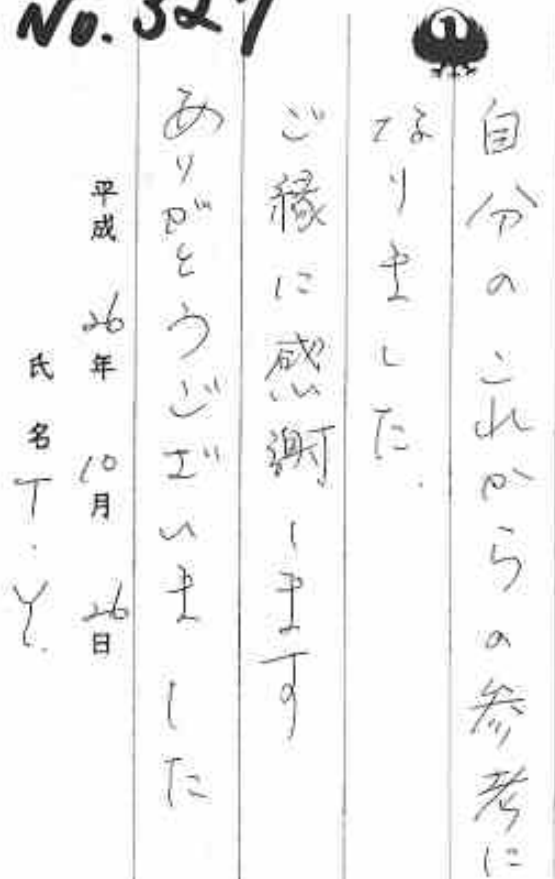 No. 327
自分のこれからの参考に
なりました.
ご縁に感謝します
ありがとうございました
平成 26年 10月 26日
氏名 T.Y.